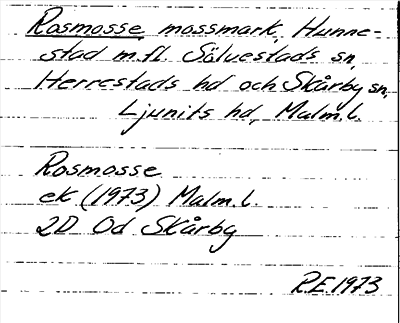 Rosmosse mossmark, Hunne-
stad m.fl. Sölvestads sn,
Herrestads hd och Skårby sn,
Ljunits hd, Malm.l.
Rosmosse
ek (1973) Malm.l.
2D Od Skårby
R.E. 1973